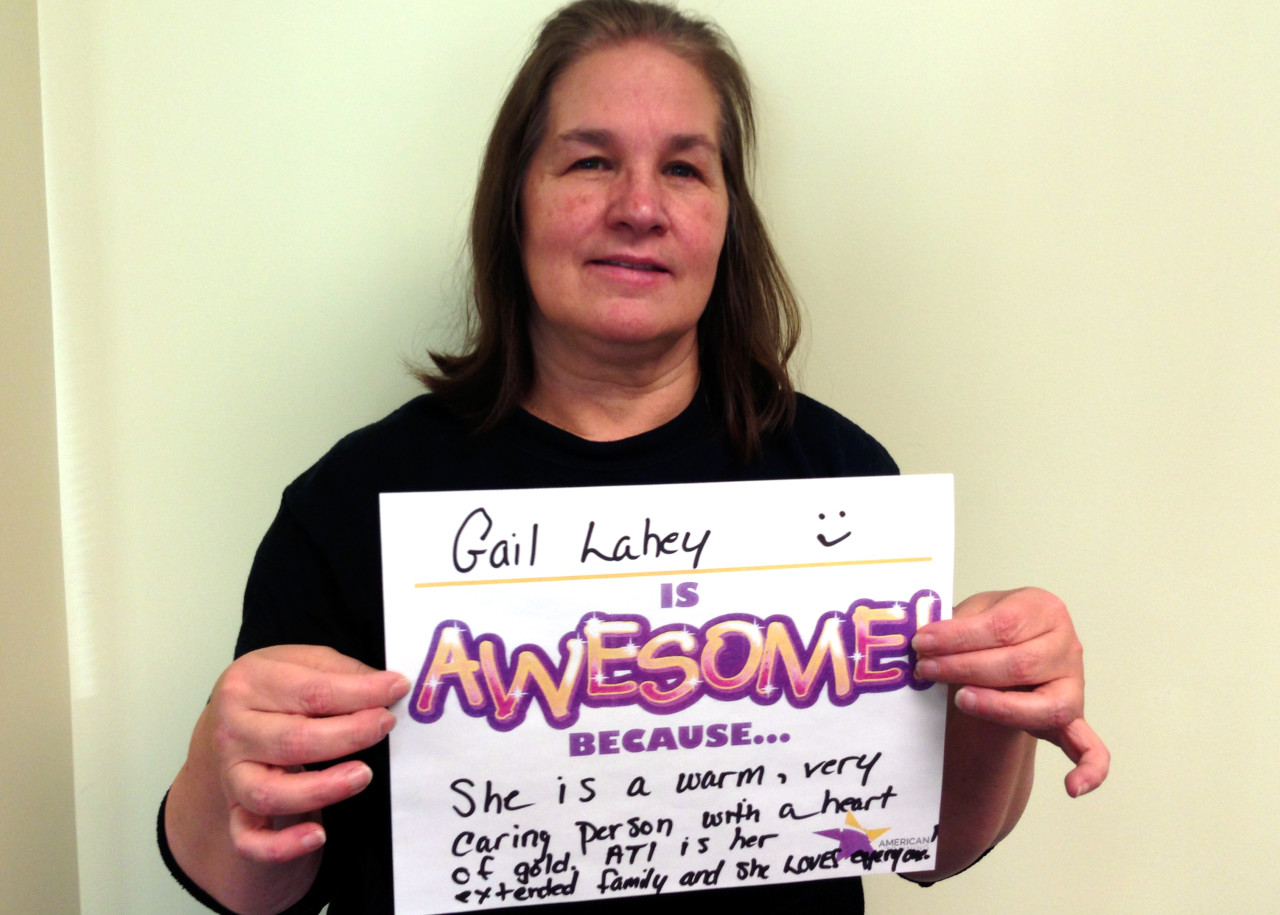 Gail Lahey
IS
AWESOME!
BECAUSE...
She is a warm, very
caring person with a heart
of gold. ATI is her
AMERICAN
extended family and she LOVES everyone!